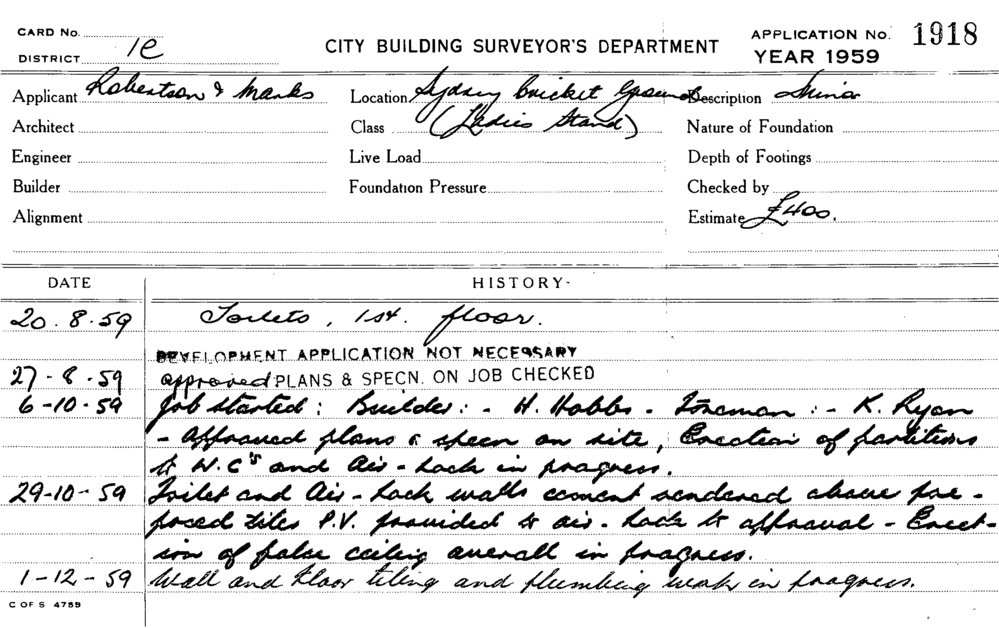 CARD No.
DISTRICT 1e
CITY BUILDING SURVEYOR'S DEPARTMENT
APPLICATION No. 1918
YEAR 1959
Applicant Robertson & Marks
Location Sydney Cricket Ground
Description Minor
Architect
Class (Ladies Stand)
Nature of Foundation
Engineer
Live Load
Depth of Footings
Builder
Foundation Pressure
Checked by
Alignment
Estimate £400.
DATE HISTORY-
20.8.59 Toilets, 1st. floor.
DEVELOPMENT APPLICATION NOT NECESSARY
27-8-59 approved PLANS & SPECN. ON JOB CHECKED
6-10-59 Job started: Builder:- H. Hobbs - Foreman:- K. Ryan
- Approved plans & specn on site, Erection of partitions
to W.C's and Air-Lock in progress.
29-10-59 Toilet and Air-Lock walls cement rendered above pro-
posed tiles P.V. provided to air-lock to approval - Erect-
ion of false ceiling overall in progress.
1-12-59 Wall and floor tiling and plumbing work in progress.
C OF S 4759